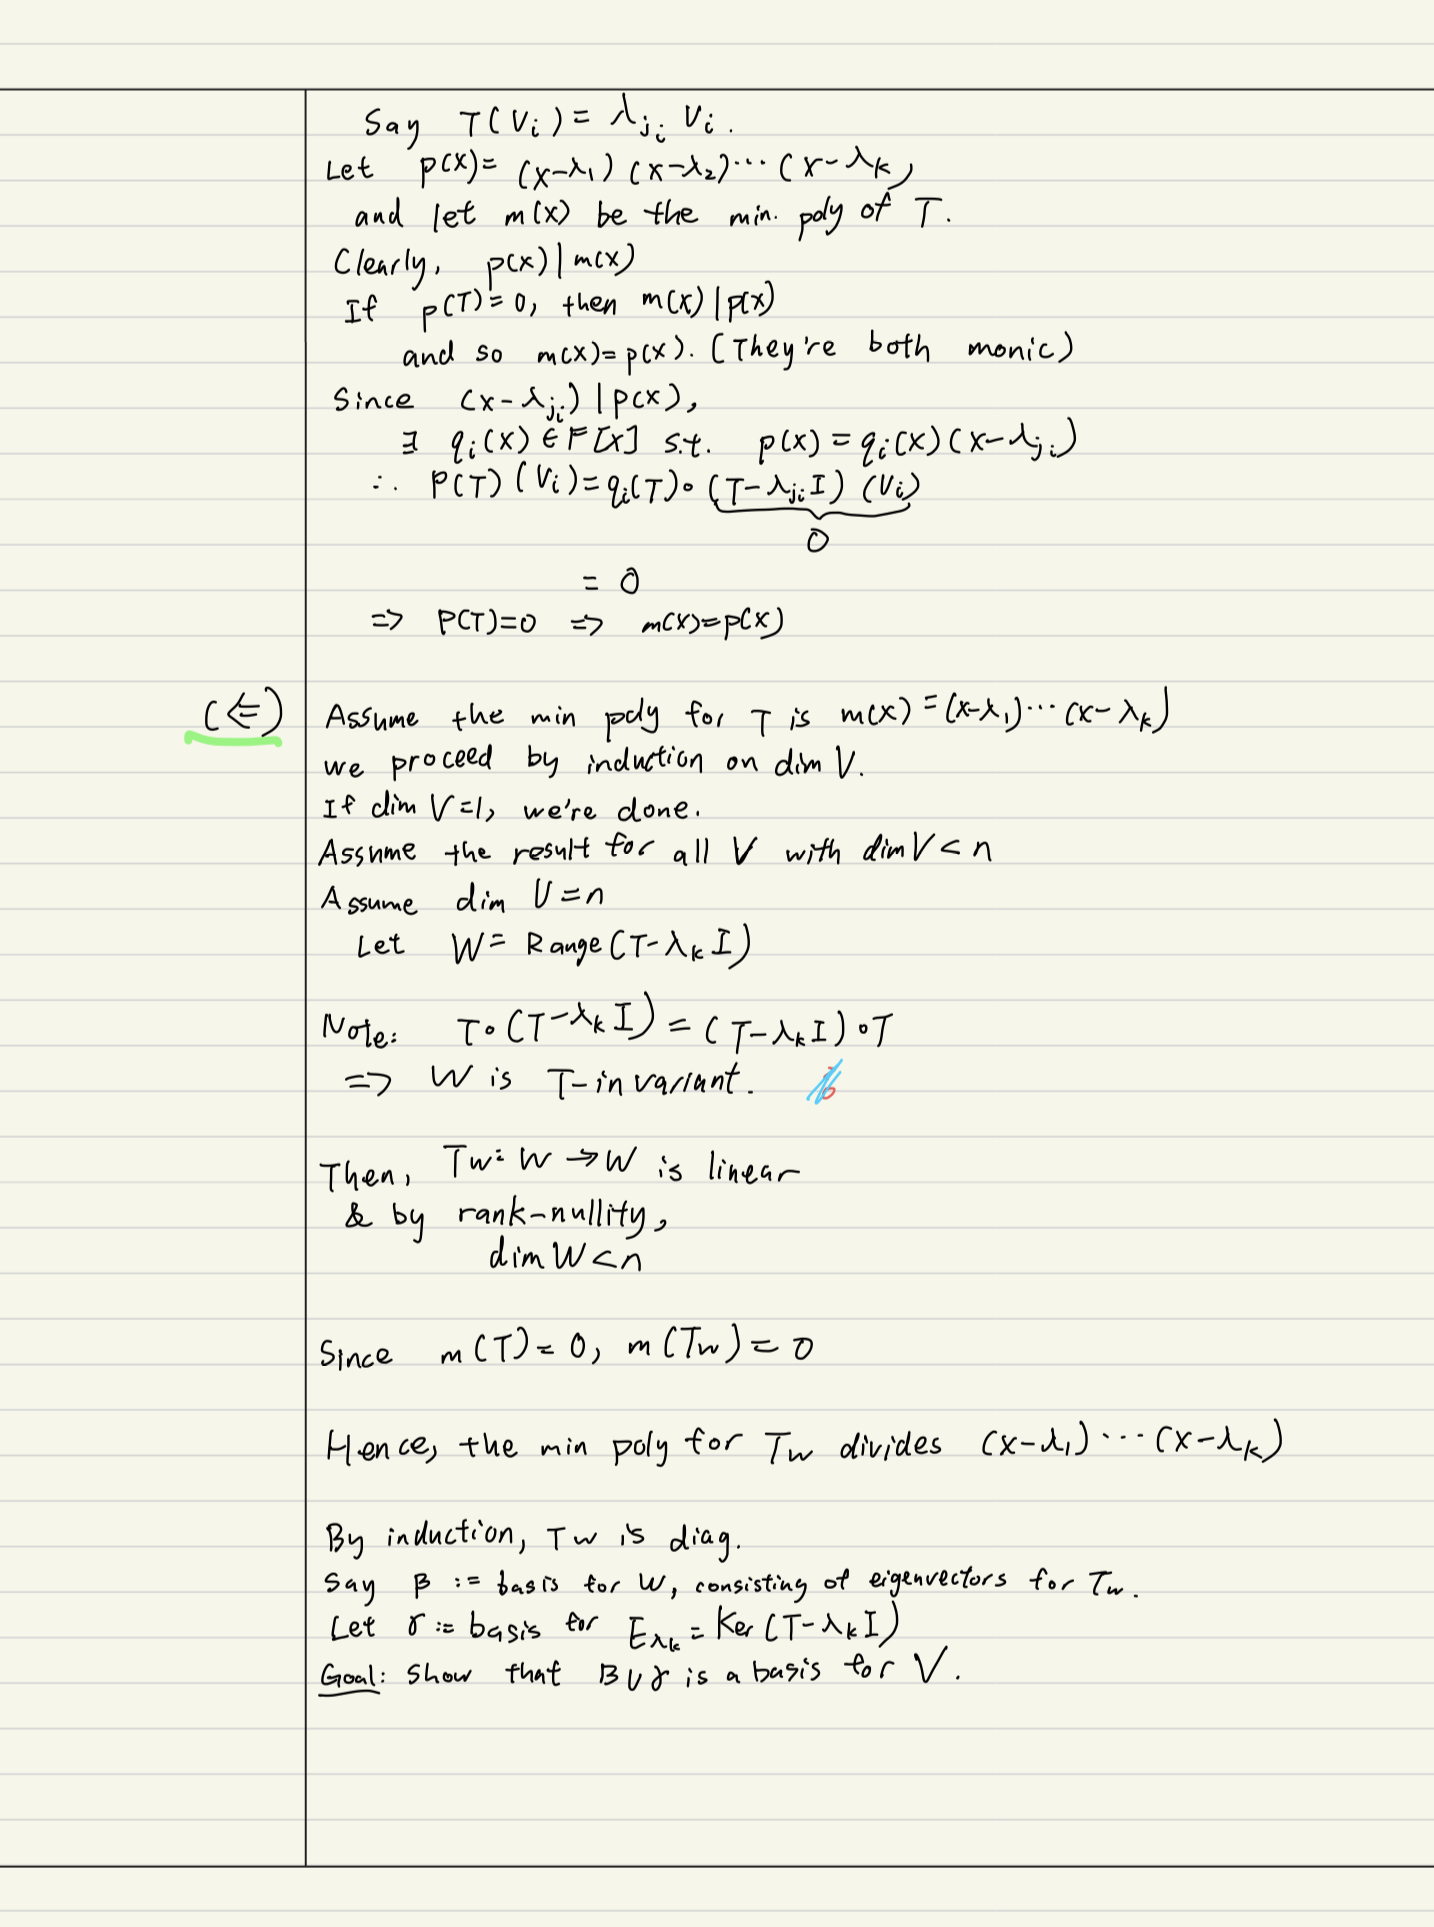 Say T(vᵢ) = λⱼᵢ vᵢ.
Let p(x) = (x-λ₁)(x-λ₂)⋯(x-λₖ)
and let m(x) be the min. poly of T.
Clearly, p(x)|m(x)
If p(T)=0, then m(x)|p(x)
and so m(x)=p(x). (They're both monic)
Since (x-λⱼᵢ)|p(x),
∃ qᵢ(x)∈F[x] s.t. p(x)=qᵢ(x)(x-λⱼᵢ)
∴ P(T)(Vᵢ)=qᵢ(T)∘(T-λⱼᵢI)(Vᵢ)
0
= 0
=> P(T)=0 => m(x)=p(x)
(⇐) Assume the min poly for T is m(x)=(x-λ₁)⋯(x-λₖ)
we proceed by induction on dim V.
If dim V=1, we're done.
Assume the result for all V with dim V < n
Assume dim V=n
Let W= Range(T-λₖI)
Note: T∘(T-λₖI)=(T-λₖI)∘T
=> W is T-invariant.
Then, T_W: W→W is linear
& by rank-nullity,
dim W<n
Since m(T)=0, m(T_W)=0
Hence, the min poly for T_W divides (x-λ₁)⋯(x-λₖ)
By induction, T_W is diag.
Say β := basis for W, consisting of eigenvectors for T_W.
Let γ := basis for E_λₖ = Ker(T-λₖI)
Goal: Show that β∪γ is a basis for V.